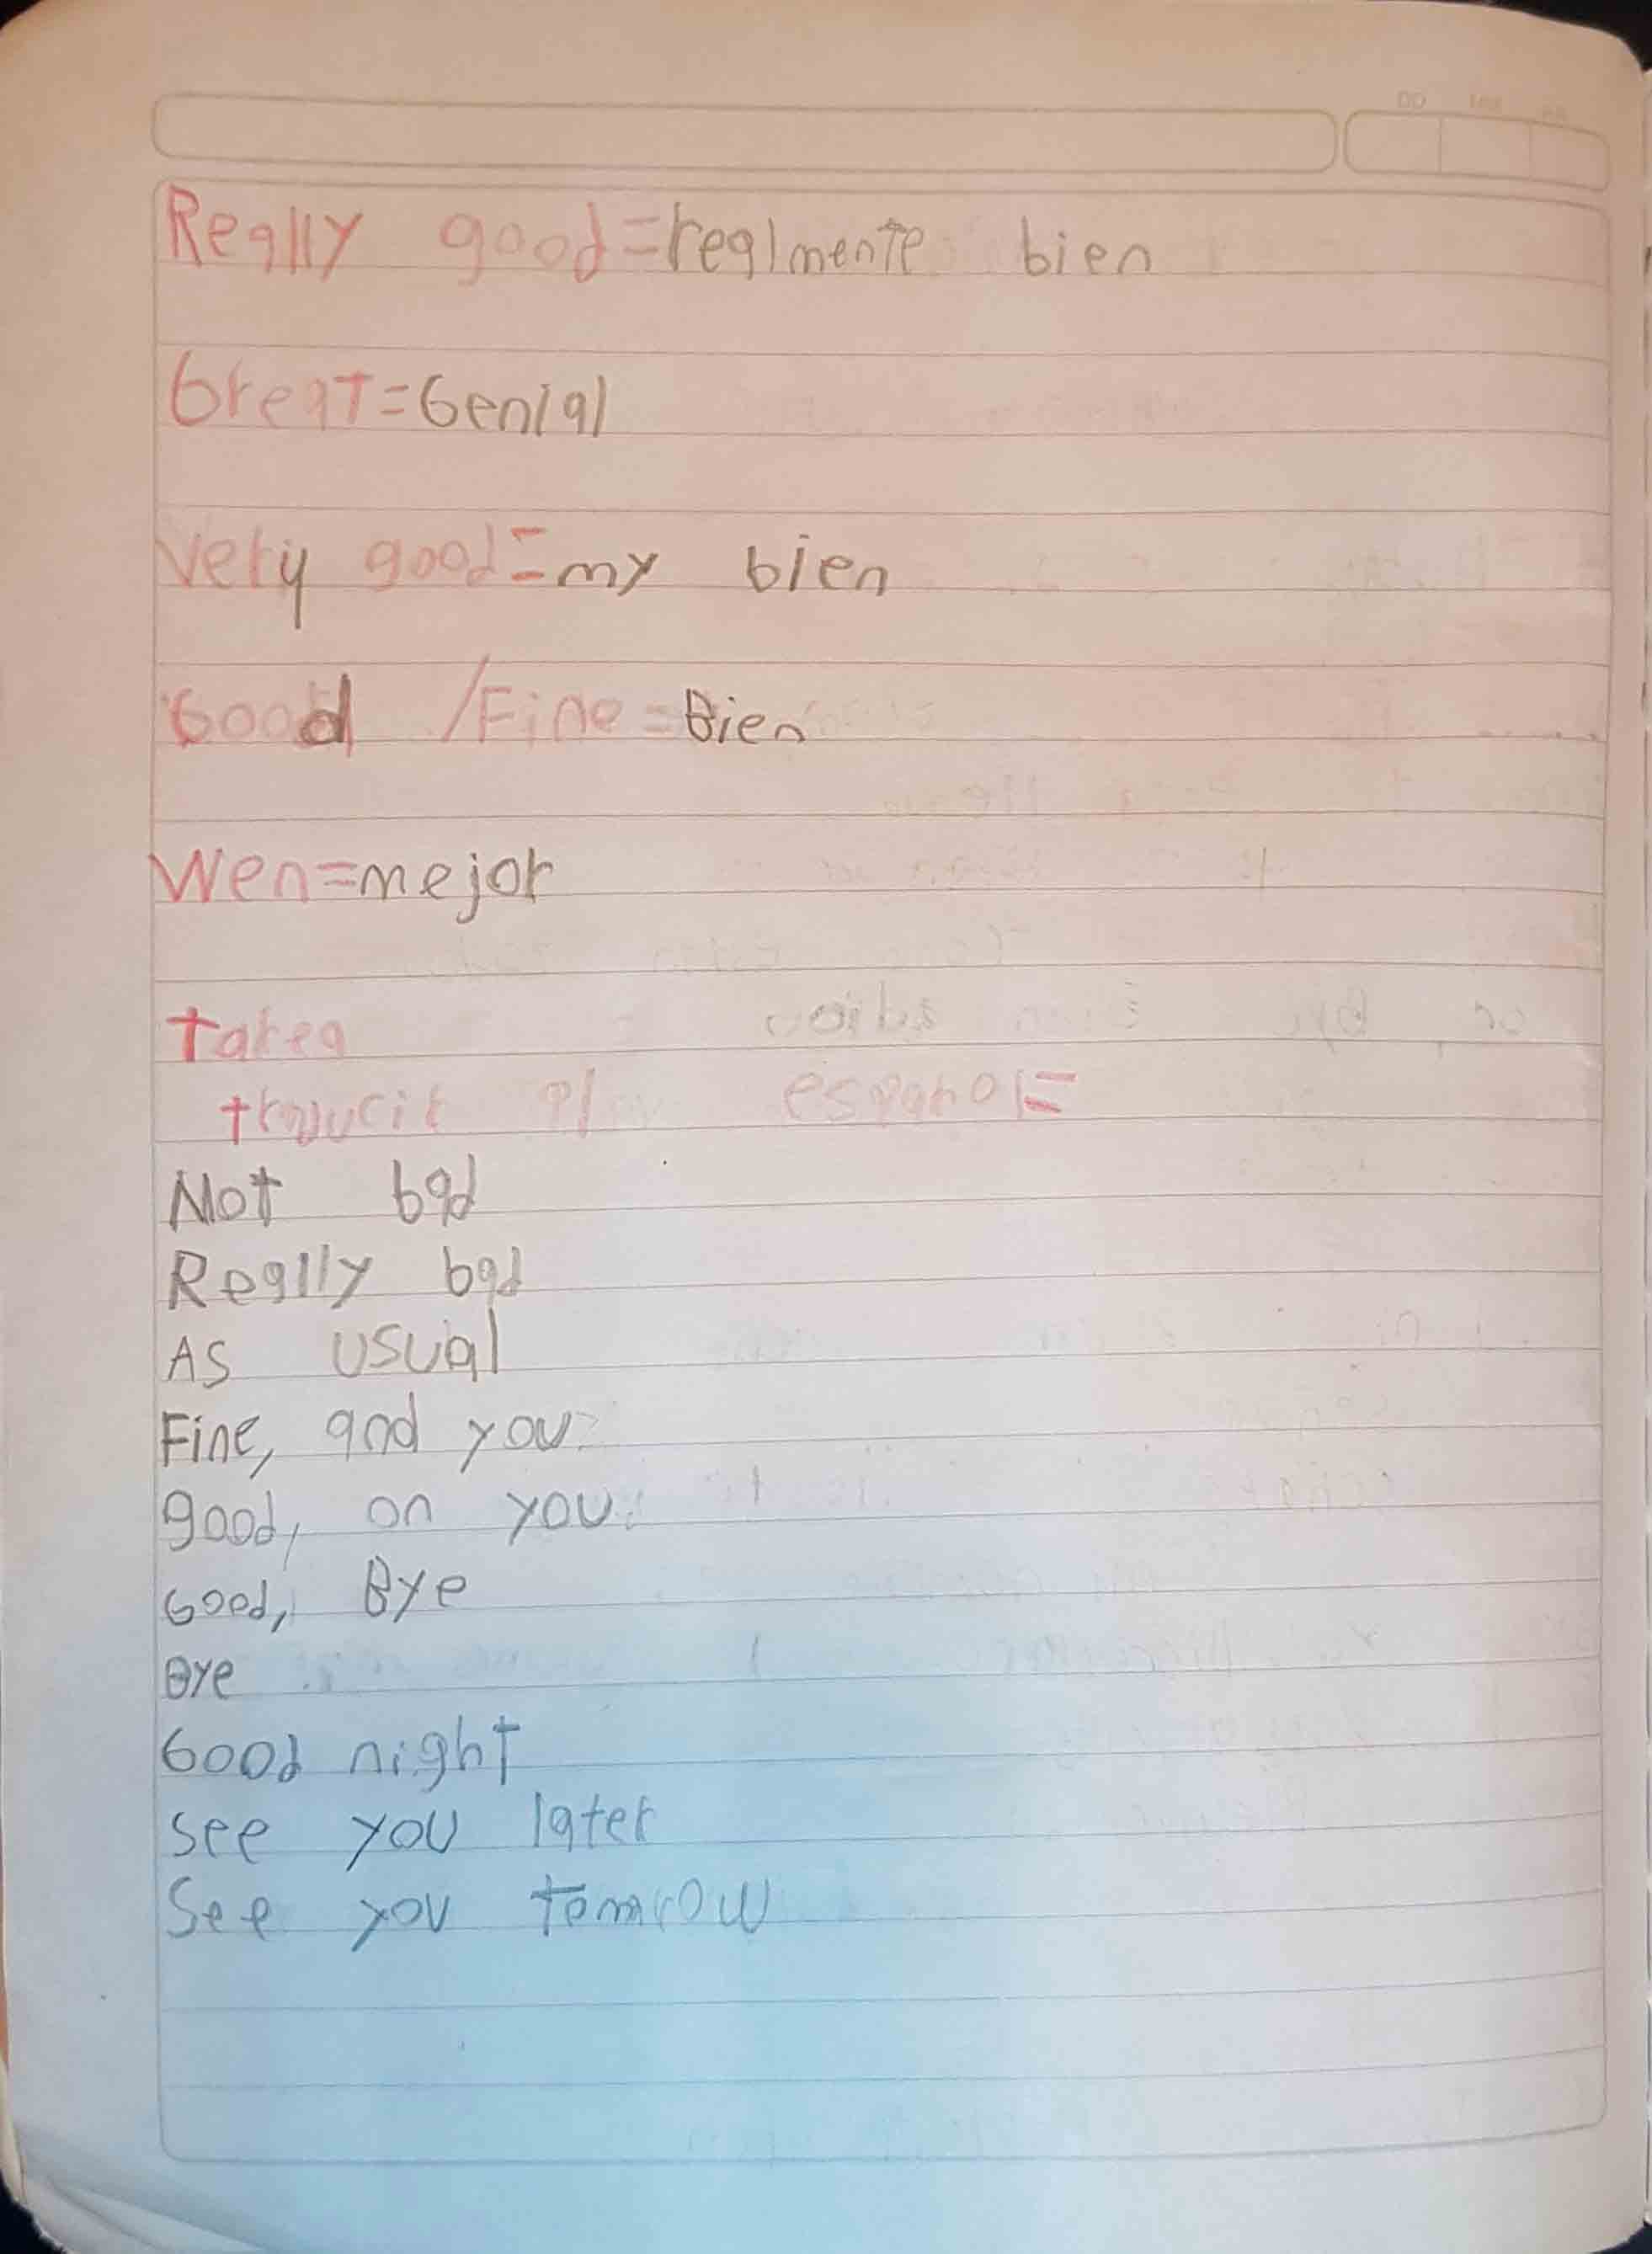 Really good=realmente bien
Great=Genial
Veriy good=my bien
Good /Fine=Bien
Wen=mejor
tarea
traucir al espanol=
Not bad
Really bad
As usual
Fine, and you?
good, on you:
Good, Bye
Bye
Good night
see you later
See you tomrrow